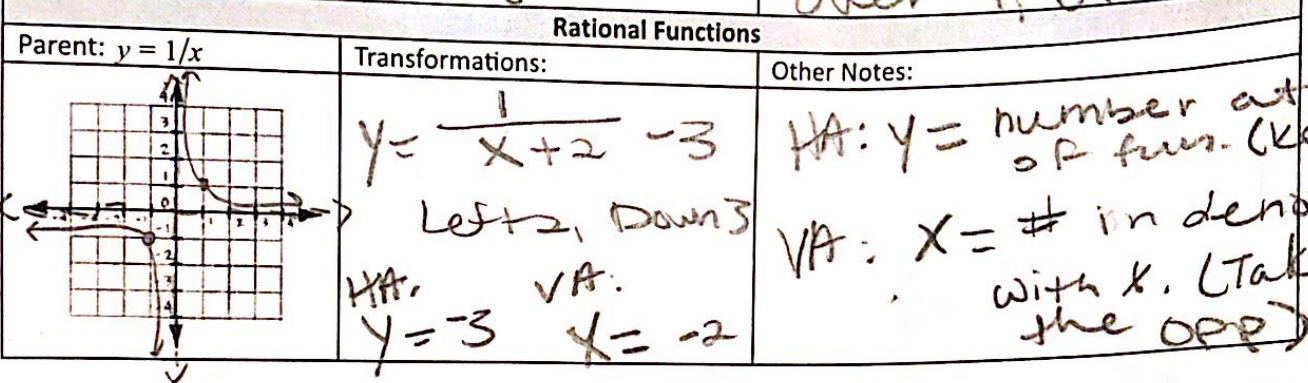 Rational Functions
Parent: y = 1/x
Transformations:
Other Notes:
4
3
2
1
0
-1
-2
-3
-4
1 2 3 4
y = 1/(x+2) -3
Left 2, Down 3
HA.
VA:
y = -3
x = -2
HA: y = number at
of fun. (K
VA: x = # in deno
with x. (Tak
the opp)